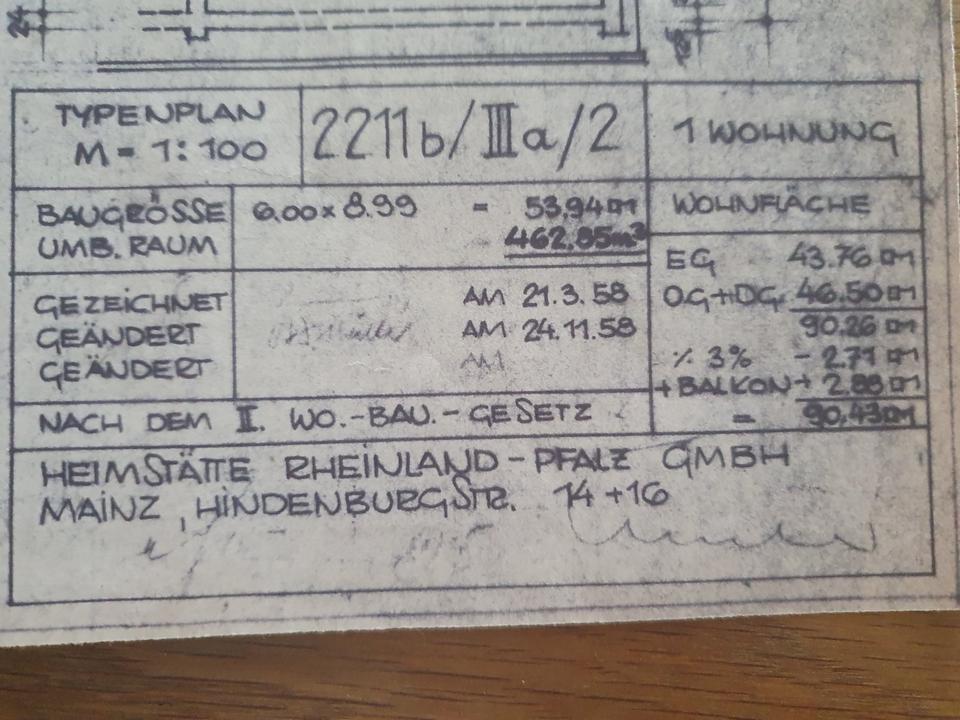 24
TYPENPLAN
M = 1:100
2211b/IIIa/2
1 WOHNUNG
BAUGRÖSSE 6.00 x 8.99 = 53.94 m
UMB. RAUM 462.85 m³
WOHNFLÄCHE
EG 43.76 m
OG+DG 46.50 m
90.26 m
% 3% - 2.71 m
+BALKON + 2.88 m
= 90.43 m
GEZEICHNET AM 21.3.58
GEÄNDERT AM 24.11.58
GEÄNDERT AM
NACH DEM II. WO.-BAU.-GESETZ
HEIMSTÄTTE RHEINLAND-PFALZ GMBH
MAINZ, HINDENBURGSTR. 14+16